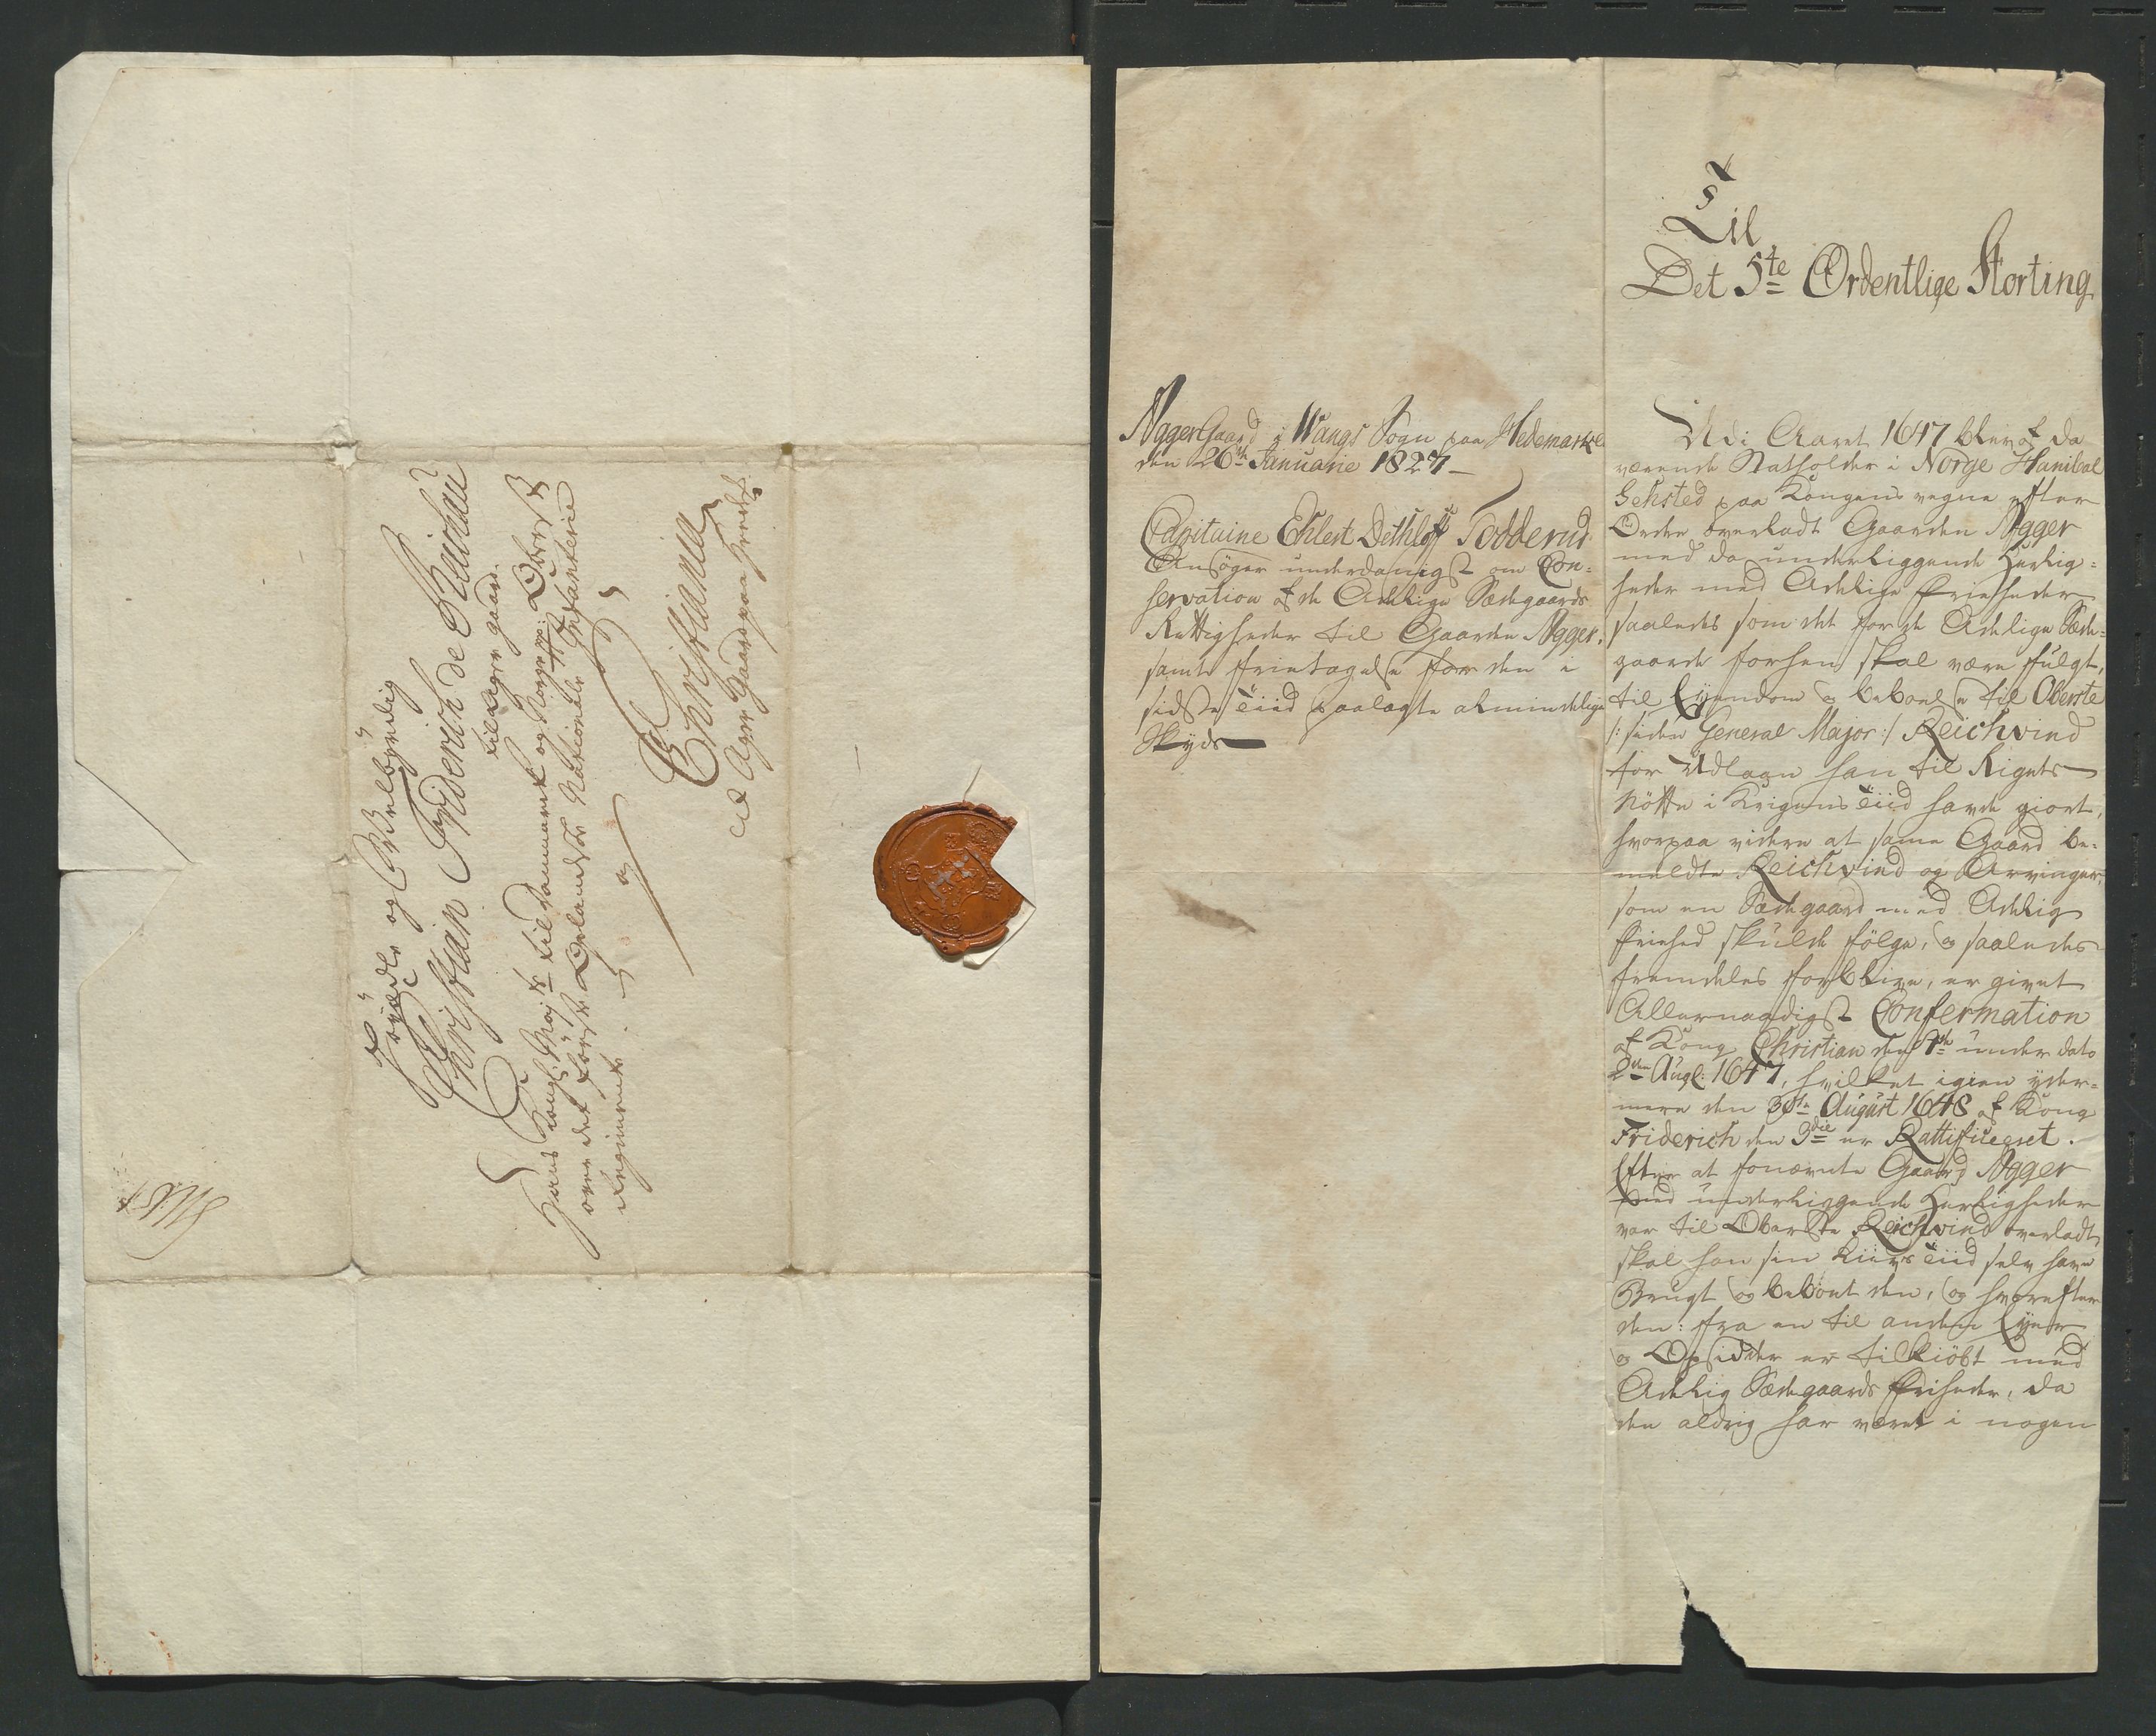 Høyædle og Velbyrdig
Christian Friderich de
til Ager gaard.
Hans Kongl: Maj:ts til Dannemark og Norge pp: Oberst
over det første Oplandske Nationale Infanterie
Regimente
a
Christiania
Ager Gaard paa
Agger Gaard i Wangs Sogn paa Hedemarke
den 26de Januarie 1827
Capitaine Ehlert Dethloff Todderud
Ansøger underdanigst om Con=
servation af de Adelige Sædegaards
Rettigheder til Gaarden Agger,
samt frietagelse for den i
sidste Tiid paalagte almindelige
Skyds
Til
Det 5te Ordentlige Storting
Udi Aaret 1647 blev af da
værende Statholder i Norge Hanibal
Sehsted paa Kongens vegne efter
Ordre overladt Gaarden Agger
med da underliggende Herlig=
heder med Adelige Friheder
saaledes som det for de Adelige Sæde=
gaarde forhen skal være fulgt,
til Eyendom og beboelse til Oberste
/: siden General Major :/ Reichvind
for Udlagn han til Rigets
Nøtte i Krigens Tiid havde giort,
hvorpaa videre at same Gaard be=
meldte Reichvind og Arvinger,
som en Sædegaard med Adelig
Friehed skulde følge, og saaledes
fremdeles forblive, er givet
Allernaadigst Confermation
af Kong Christian den 4de under dato
2den Augl: 1647, hvilket igien yder=
mere den 30te August 1648 af Kong
Friderich den 3die er Rattificeret.
Efter at fonævnte Gaard Agger
med underliggende Herligheder
var til Oberste Reichvind overladt,
skal han sin Liivs Tiid selv have
Brugt og beboet den, og hvorefter
den: fra en til anden Eyer
og Opsidder er tilkiøbt med
Adelig Sædegaards Friheder, da
den aldrig har været i nogen